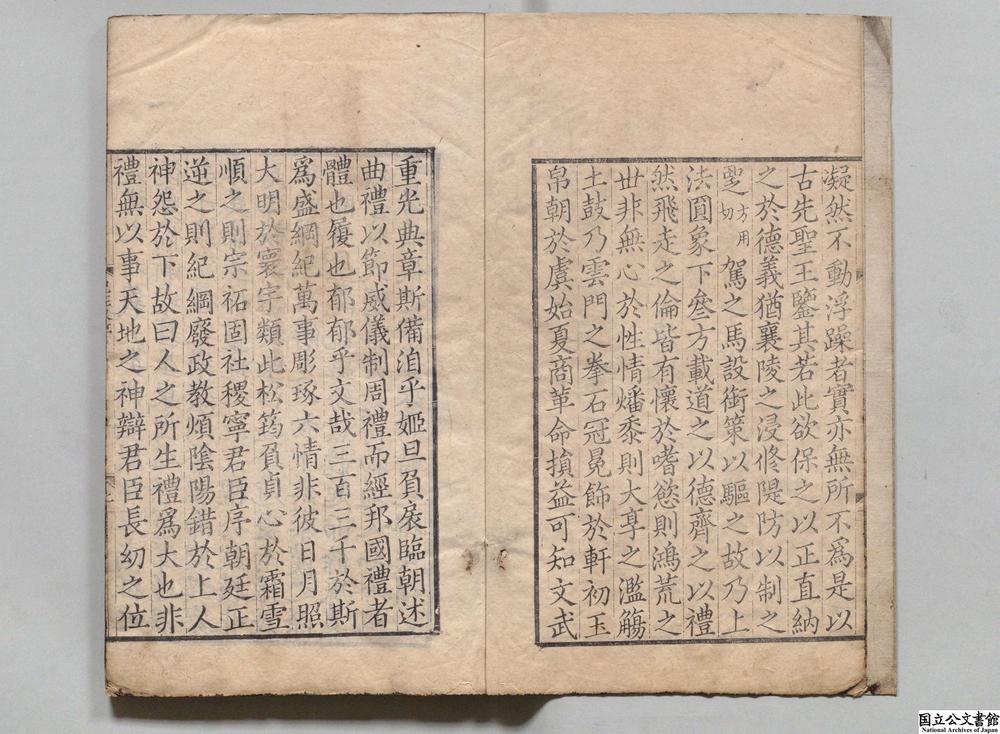 凝然不動浮躁者實亦無所不爲是以
古先聖王鑒其若此欲保之以正直納
之於德義猶襄陵之浸修隄防以制之
覂方用切駕之馬設銜策以驅之故乃上
法圓象下叄方載道之以德齊之以禮
然飛走之倫皆有懷於嗜慾則鴻荒之
丗非無心於性情燔黍則大享之濫觴
土鼓乃雲門之拳石冠冕飾於軒初玉
帛朝於虞始夏商革命損益可知文武
重光典章斯備洎乎姬旦負扆臨朝述
曲禮以節威儀制周禮而經邦國禮者
體也履也郁郁乎文哉三百三千於斯
爲盛綱紀萬事彫琢六情非彼日月照
大明於寰宇類此松筠負貞心於霜雪
順之則宗祏固社稷寧君臣序朝廷正
逆之則紀綱廢政教煩陰陽錯於上人
神怨於下故曰人之所生禮爲大也非
禮無以事天地之神辯君臣長幼之位
国立公文書館
National Archives of Japan